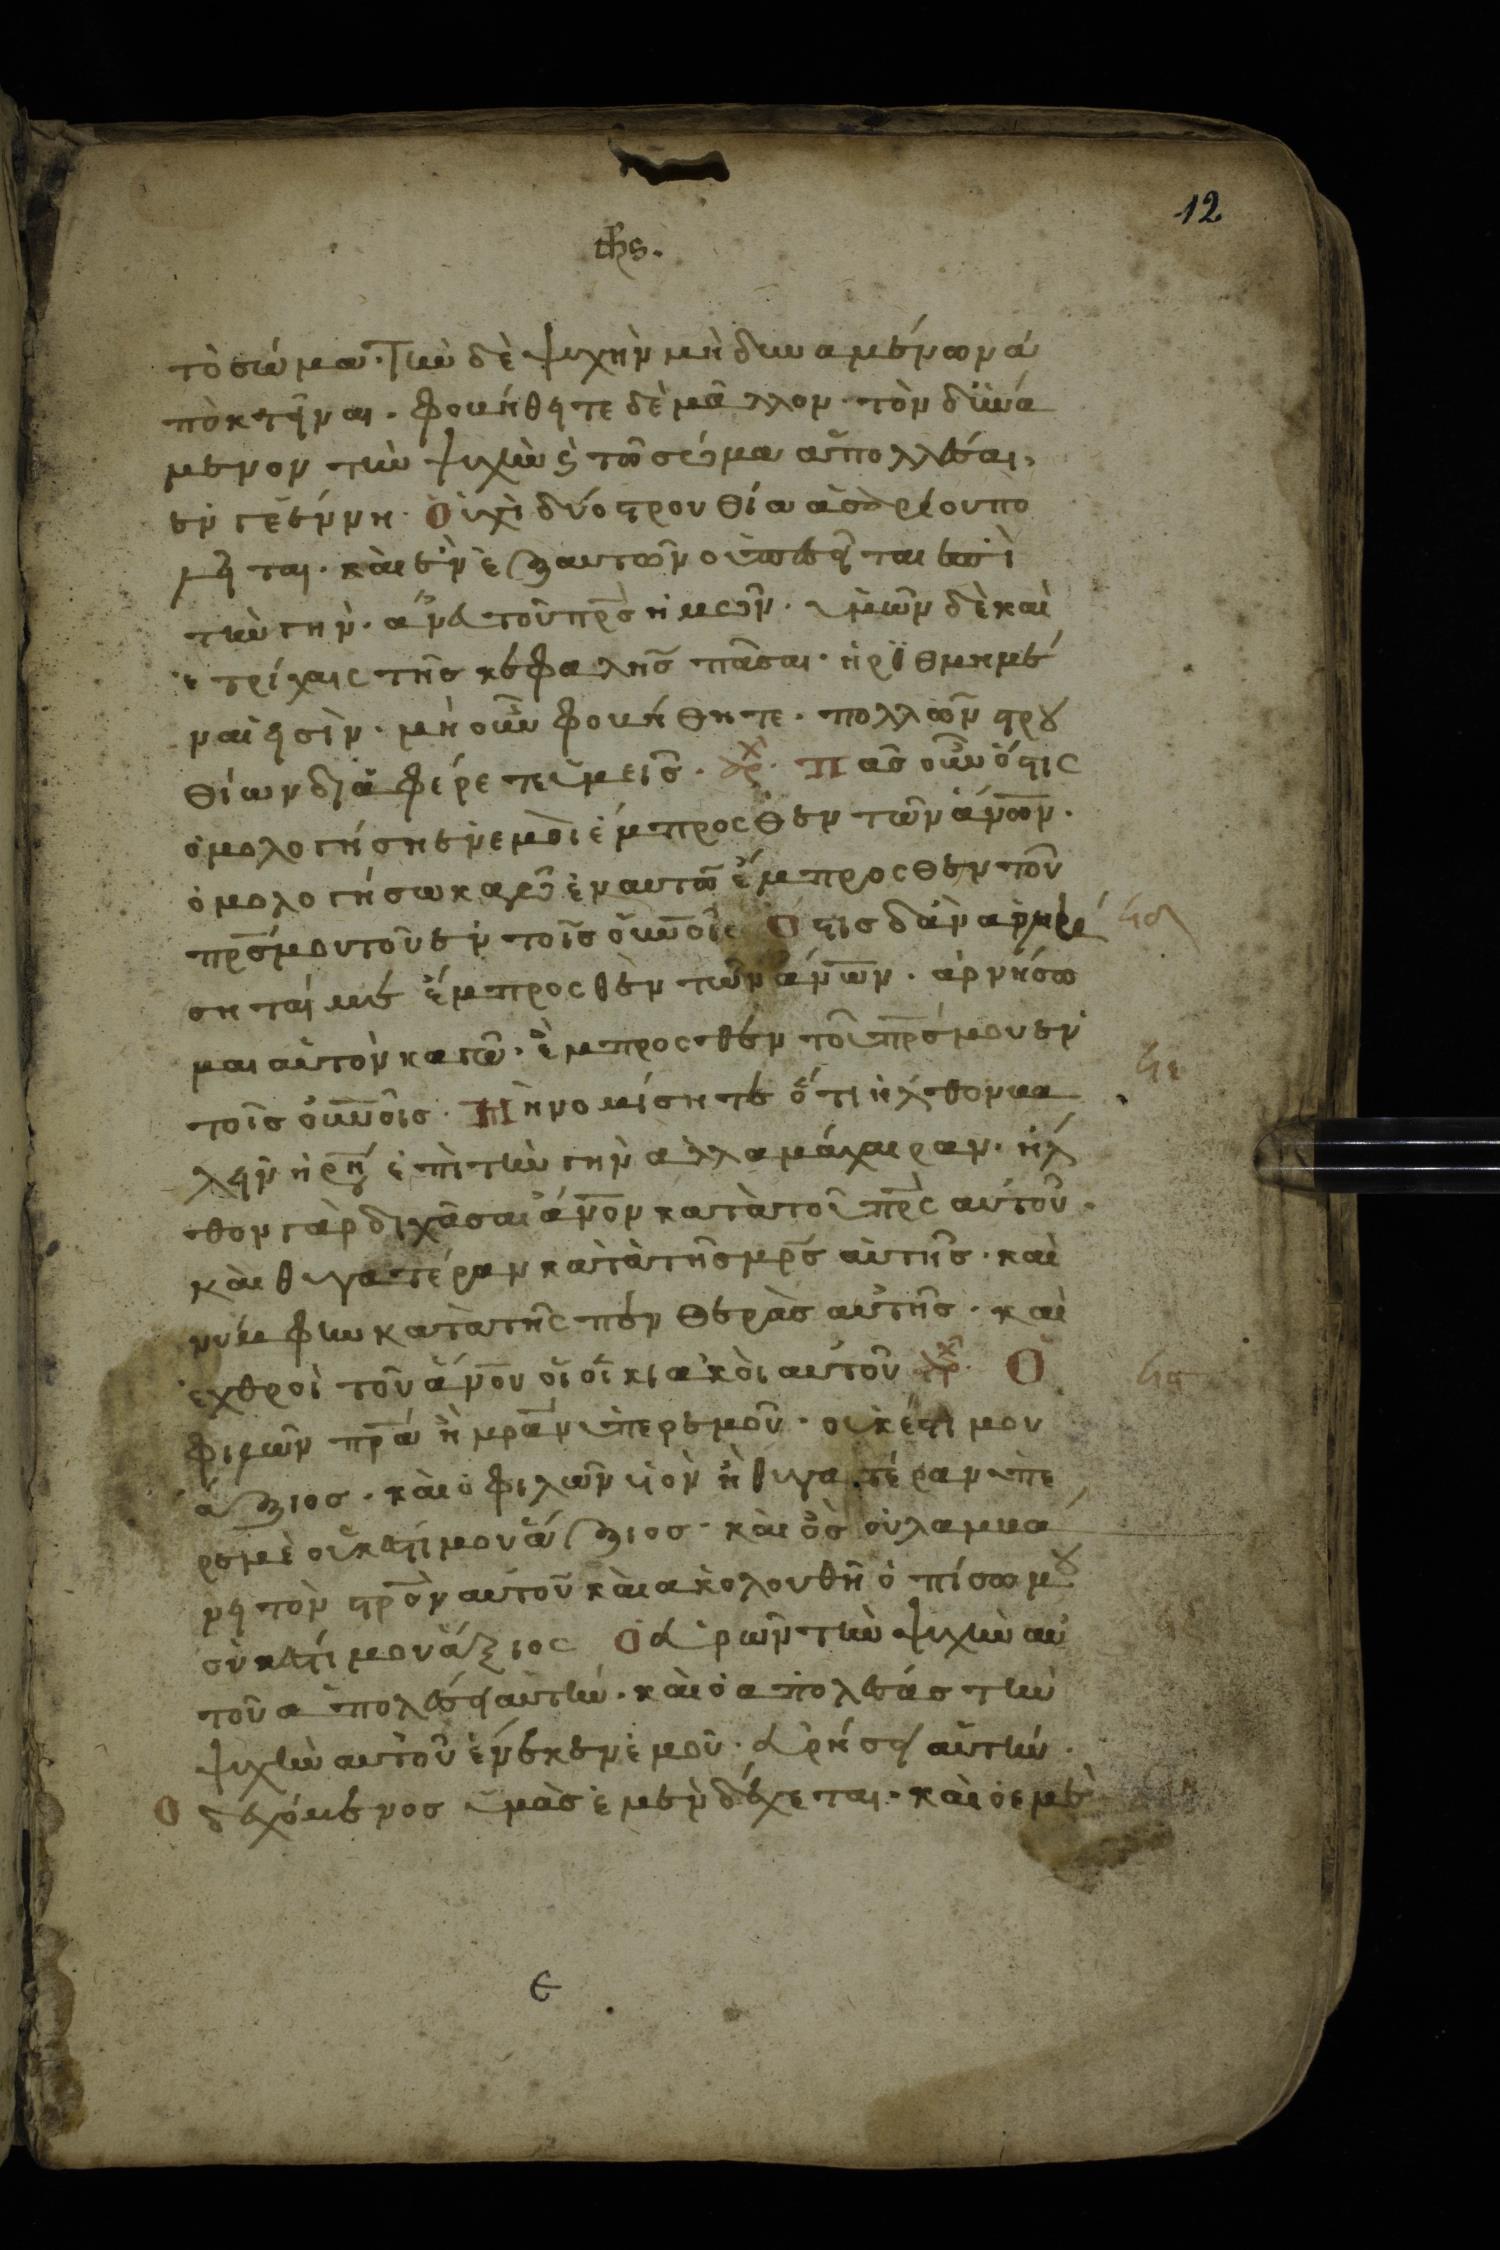 12
ihs.
τὸ σώμα· τὴν δὲ ψυχὴν μὴ δυναμένων ἀ
ποκτῆναι· φοβήθητε δὲ μᾶλλον τὸν δυνά
μενον τὴν ψυχὴν ϗ τὸ σώμα ἀπολλέσαι,
ἐν γεέννη· Οὐχὶ δύο στρουθία ἀσαρίου πο
λῆται· καὶ ἐν ἐξ αυτῶν οὐ πεσῆται ἐπὶ
τὴν γὴν· ἄνευ τοῦ πρς ἡμῶν· ὑμῶν δὲ καὶ
ἑ τρίχαις τῆς κεφαλῆς πᾶσαι· ἠριθμημέ
ναι εἰσὶν· μὴ οὖν φοβήθητε· πολλῶν στρου
θίων διαφέρετε ὑμεῖς· Πᾶς οὖν ὅστις
ὁμολογήση ἐν ἐμοὶ ἔμπροσθεν τῶν ἀνων·
ὁμολογήσω καγὼ ἐν αυτῶ ἔμπροσθεν τοῦ
πρς μου τοῦ ἐν τοῖς οὐνοῖς Ὅστις δ' ἀν ἀρνή
σηταί με ἔμπροσθεν τῶν ἀνων· ἀρνήσω
μαι αὐτὸν καγὼ· ἔμπροσθεν τοῦ πρς μου ἐν
τοῖς οὐνοῖς· Μὴ νομίσητε ὅτι ἦλθον βα
λεῖν εἰρήνην ἐπὶ τὴν γὴν ἀλλα μάχαιραν· ἦλ
θον γὰρ διχᾶσαι ἄνον κατὰ τοῦ πρς αὐτοῦ·
καὶ θυγατέραν κατὰ τῆς μρς αὐτῆς· καὶ
νύμφην κατὰ τῆς πενθερὰς αὐτῆς· καὶ
ἐχθροὶ τοῦ ἀνου οἱ οἰκιακοὶ αυτοῦ Ὁ
φιλῶν πρα ἢ μραν ὑπερ ἐμοῦ· οὐκ ἔστι μου
ἄξιος· καὶ ὁ φιλῶν υἱὸν ἢ θυγατέραν ὑπε
ρ ἐμὲ οὐκ ἔστι μου ἄξιος· καὶ ὃς οὐ λαμβά
νη τὸν στρὸν αὐτοῦ καὶ ακολουθῆ ὀπίσω μου
οὐκ ἔστι μου ἄξιος Ὁ εὑρῶν τὴν ψυχὴν αὐ
τοῦ ἀπολέσει αὐτήν· καὶ ὁ ἀπολέσάς τὴν
ψυχὴν αὐτοῦ ἕνεκεν ἐμοῦ· εὑρήσει αὐτήν·
Ὁ δεχόμενος ὑμὰς ἐμὲν δέχεται· καὶ ὁ ἐμὲ
ϵ